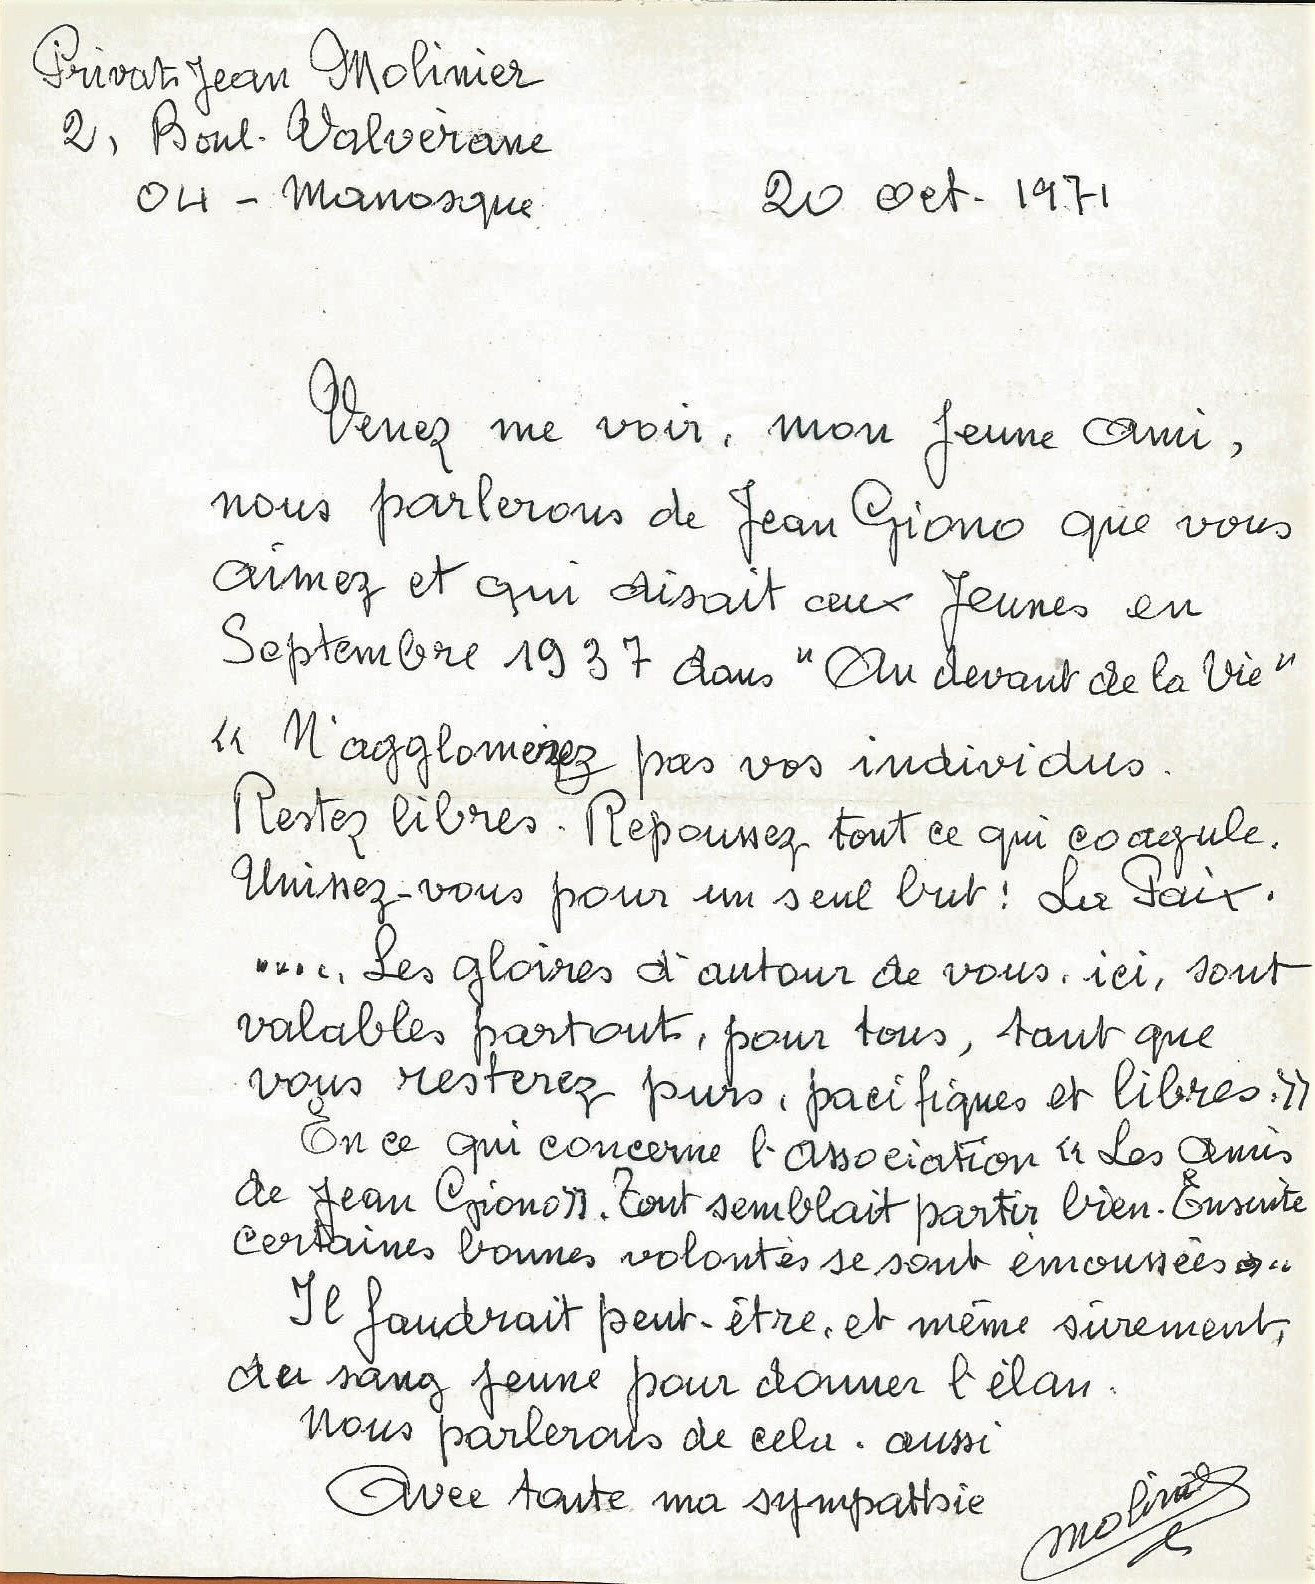 Privat Jean Molinier
2, Boul. Valvérane
04 - Manosque
20 Oct. 1971
Venez me voir, mon Jeune Ami,
nous parlerons de Jean Giono que vous
aimez et qui disait aux Jeunes en
Septembre 1937 dans "Au devant de la Vie"
« N'agglomérez pas vos individus.
Restez libres. Repoussez tout ce qui coagule.
Unissez-vous pour un seul but : La Paix.
..... Les gloires d'autour de vous, ici, sont
valables partout, pour tous, tant que
vous resterez purs, pacifiques et libres. »
En ce qui concerne l'Association « Les Amis
de Jean Giono ». Tout semblait partir bien. Ensuite
certaines bonnes volontés se sont émoussées...
Il faudrait peut-être, et même sûrement,
du sang jeune pour donner l'élan.
Nous parlerons de cela, aussi
Avec toute ma sympathie
Molinier